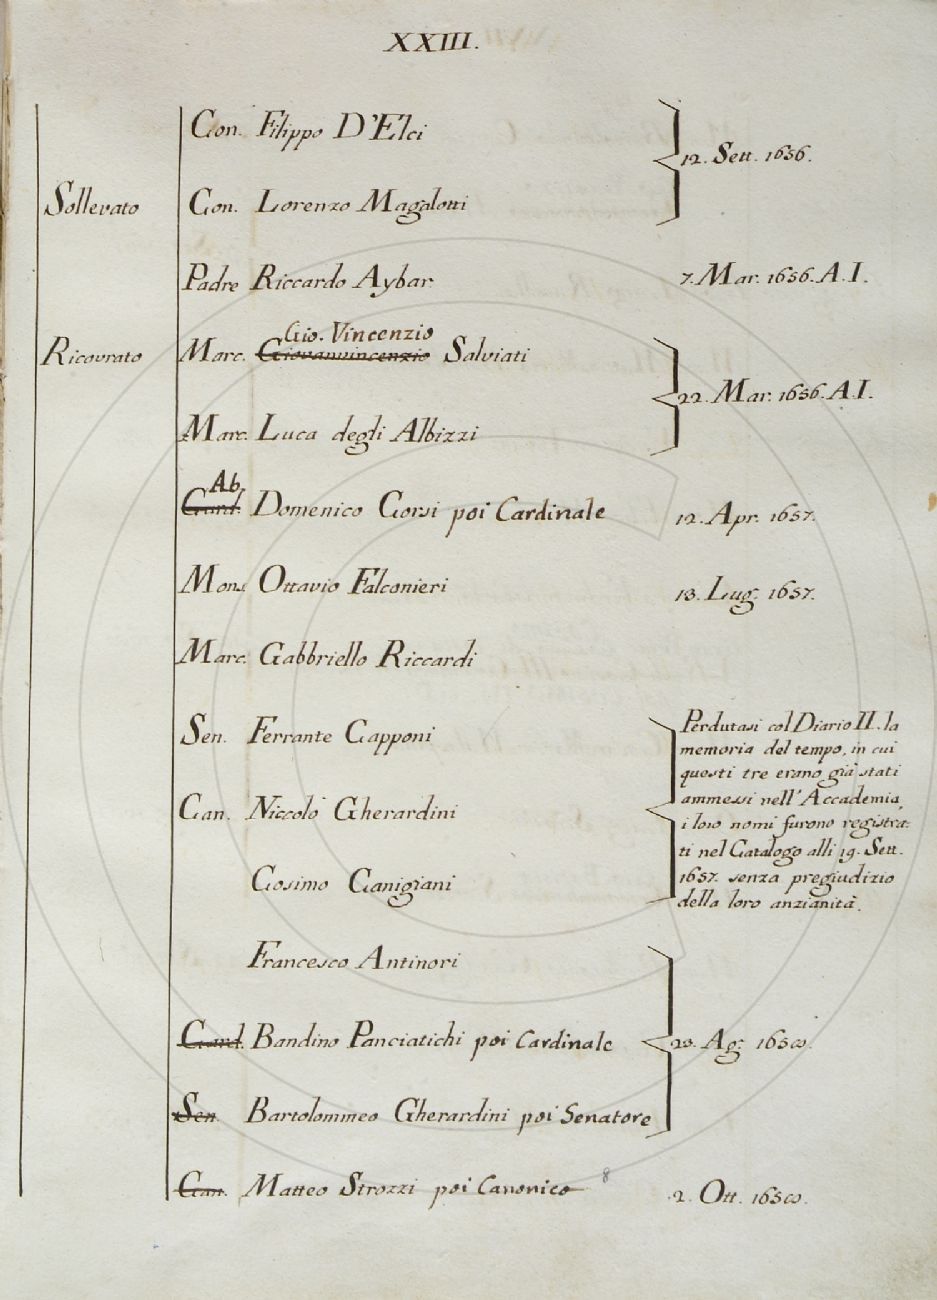 XXIII.
Con. Filippo D'Elci
12. Sett. 1656.
Sollevato Con. Lorenzo Magalotti
Padre Riccardo Aybar 7. Mar. 1656. A.I.
Gio. Vincenzio
Ricovrato Marc. Giovanvincenzio Salviati
22. Mar. 1656. A.I.
Marc. Luca degli Albizzi
Ab.
Card. Domenico Corsi poi Cardinale 12. Apr. 1657.
Mons. Ottavio Falconieri 13. Lug. 1657.
Marc. Gabbriello Riccardi
Sen. Ferrante Capponi
Can. Niccolò Gherardini
Cosimo Canigiani
Perdutasi col Diario II. la
memoria del tempo, in cui
questi tre erano già stati
ammessi nell'Accademia,
i loro nomi furono registra-
ti nel Catalogo alli 19. Sett.
1657. senza pregiudizio
della loro anzianità.
Francesco Antinori
Card. Bandino Panciatichi poi Cardinale 20. Ag. 1658.
Sen. Bartolommeo Gherardini poi Senatore
8
Can. Matteo Strozzi poi Canonico 2. Ott. 1658.